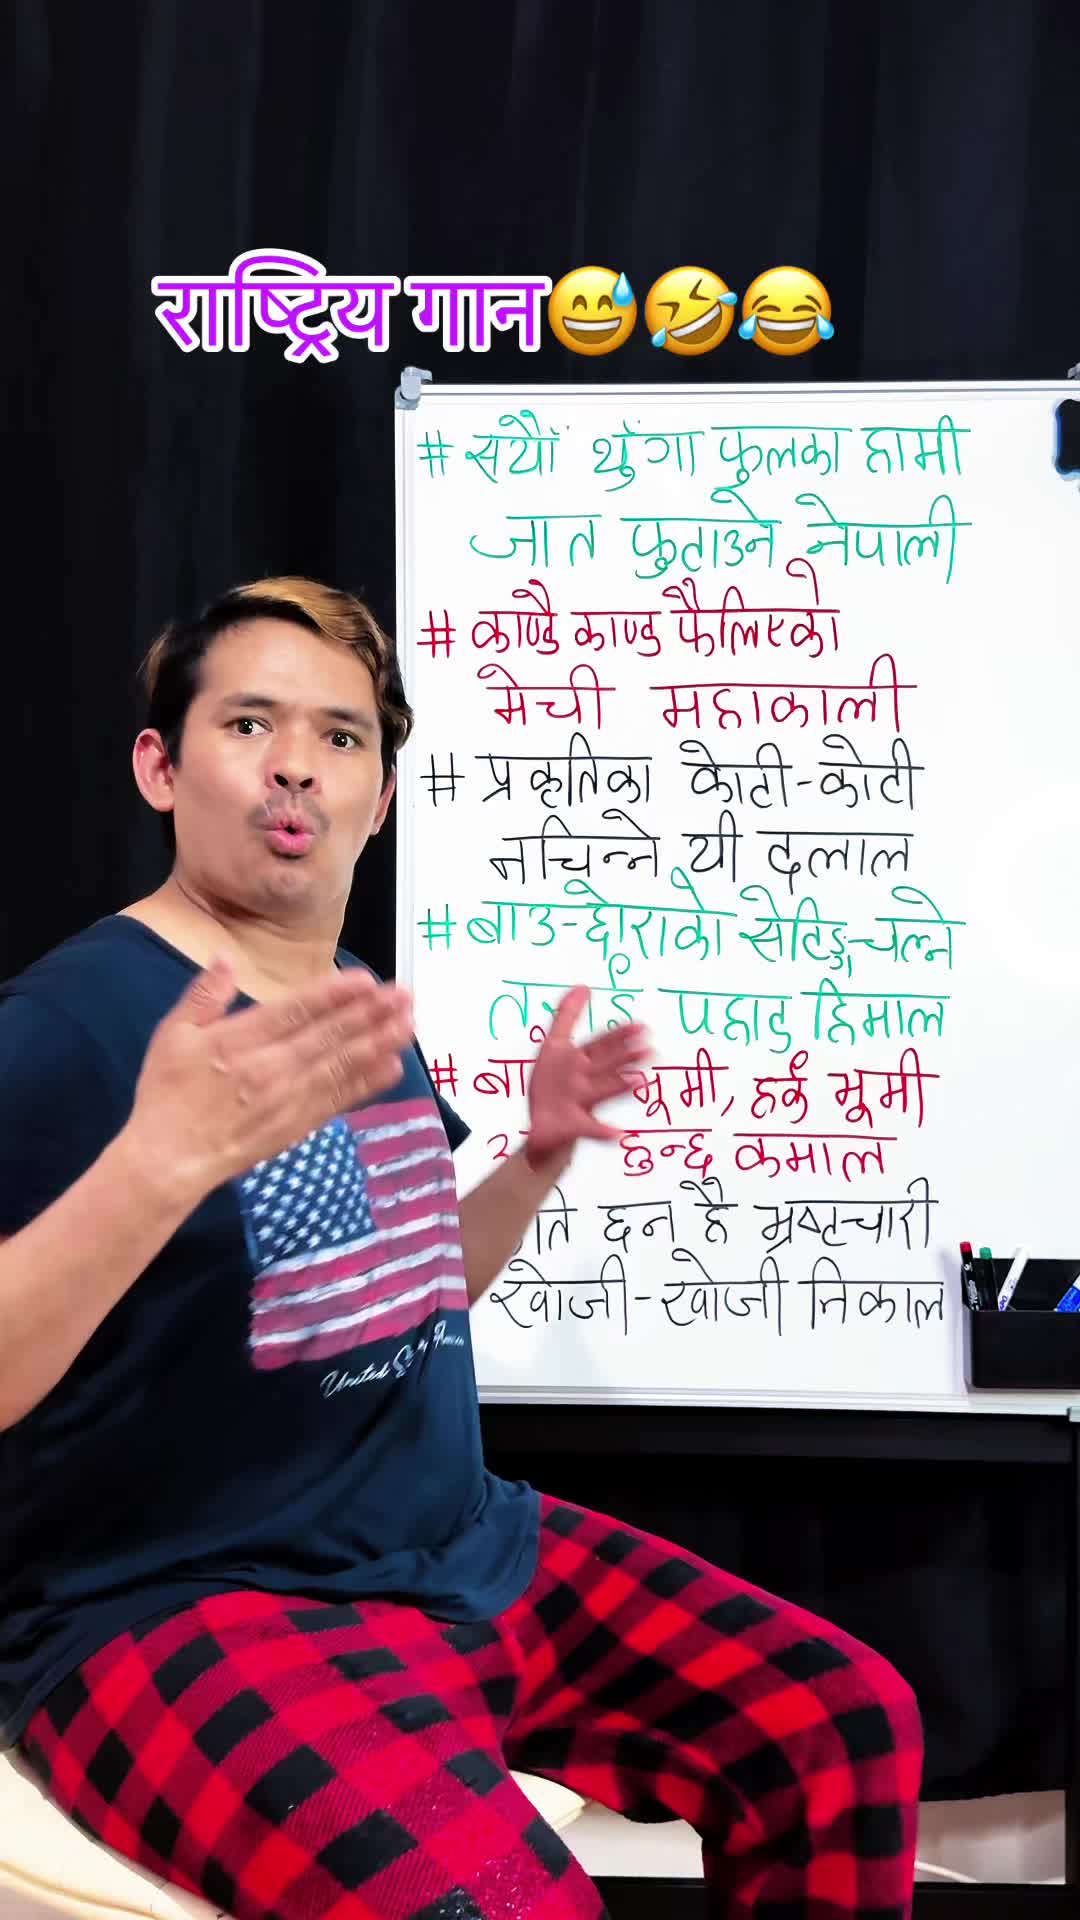 राष्ट्रिय गान😅🤣😂
# सयौँ थुँगा फुलका हामी
जात फुटाउने नेपाली
# काण्डै काण्ड फैलिएको
मेची महाकाली
# प्रकृतिका कोटी-कोटी
नचिन्ने यी दलाल
# बाउ-छोराको सेटिङ्ग चल्ने
पहाड हिमाल
# भूमी, हर्क भूमी
हुन्छ कमाल
छन है भ्रष्टचारी
खोजी-खोजी निकाल
United